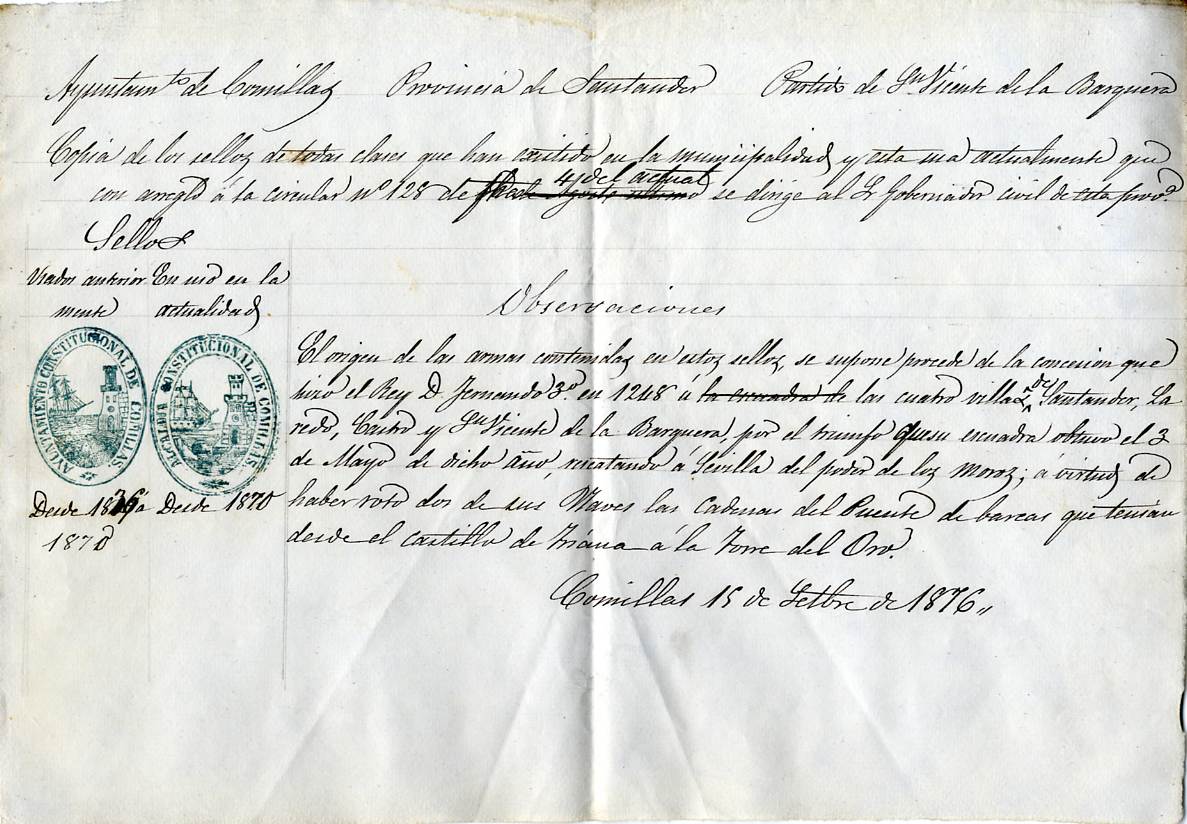 Ayuntamto de Comillas Provincia de Santander Partido de Sn Vicente de la Barquera
Copia de los sellos de todas clases que han existido en la municipalidad y esta usa actualmente que
con arreglo á la circular nº 128 de 4 del actual se dirige al Sr Gobernador civil de esta prova
Sellos
Usados anterior
mente
En uso en la
actualidad
Observaciones
AYUNTAMIENTO CONSTITUCIONAL DE COMILLAS.
ALCALDIA CONSTITUCIONAL DE COMILLAS.
Desde 1836 á
1870
Desde 1870
El origen de las armas contenidas en estos sellos, se supone procede de la concesion que
hizo el Rey D Fernando 3º en 1248 á la escuadra de las cuatro villas de Santander, La
redo, Castro y Sn Vicente de la Barquera, por el triunfo que su escuadra obtuvo el 3
de Mayo de dicho año, rescatando á Sevilla del poder de los moros; á virtud de
haber roto dos de sus Naves las cadenas del Puente de barcas que tenian
desde el castillo de Triana a la Torre del Oro.
Comillas 15 de Setbre de 1876,,